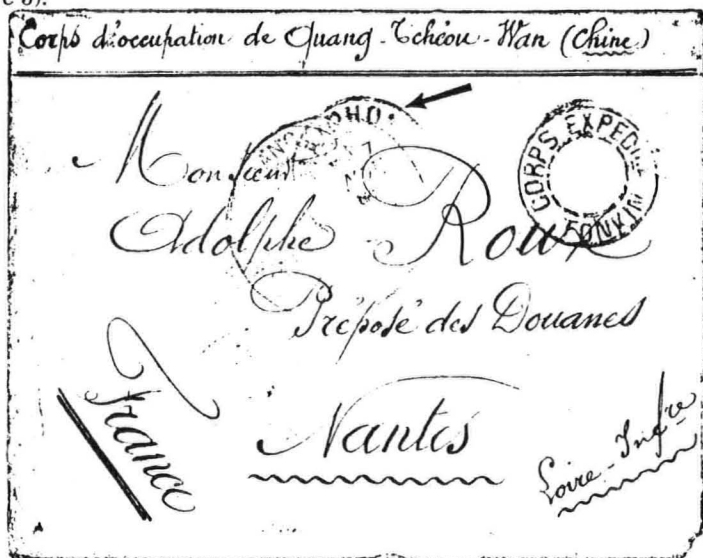 Corps d'occupation de Quang-Tchéou-Wan (Chine)
HO
CORPS EXPEDI
Monsieur
Adolphe Roux
Préposé des Douanes
France
Nantes
Loire-Infre